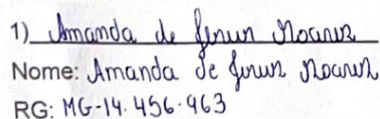 1) Amanda de Jesus Soares
Nome: Amanda de Jesus Soares
RG: MG-14.456.963